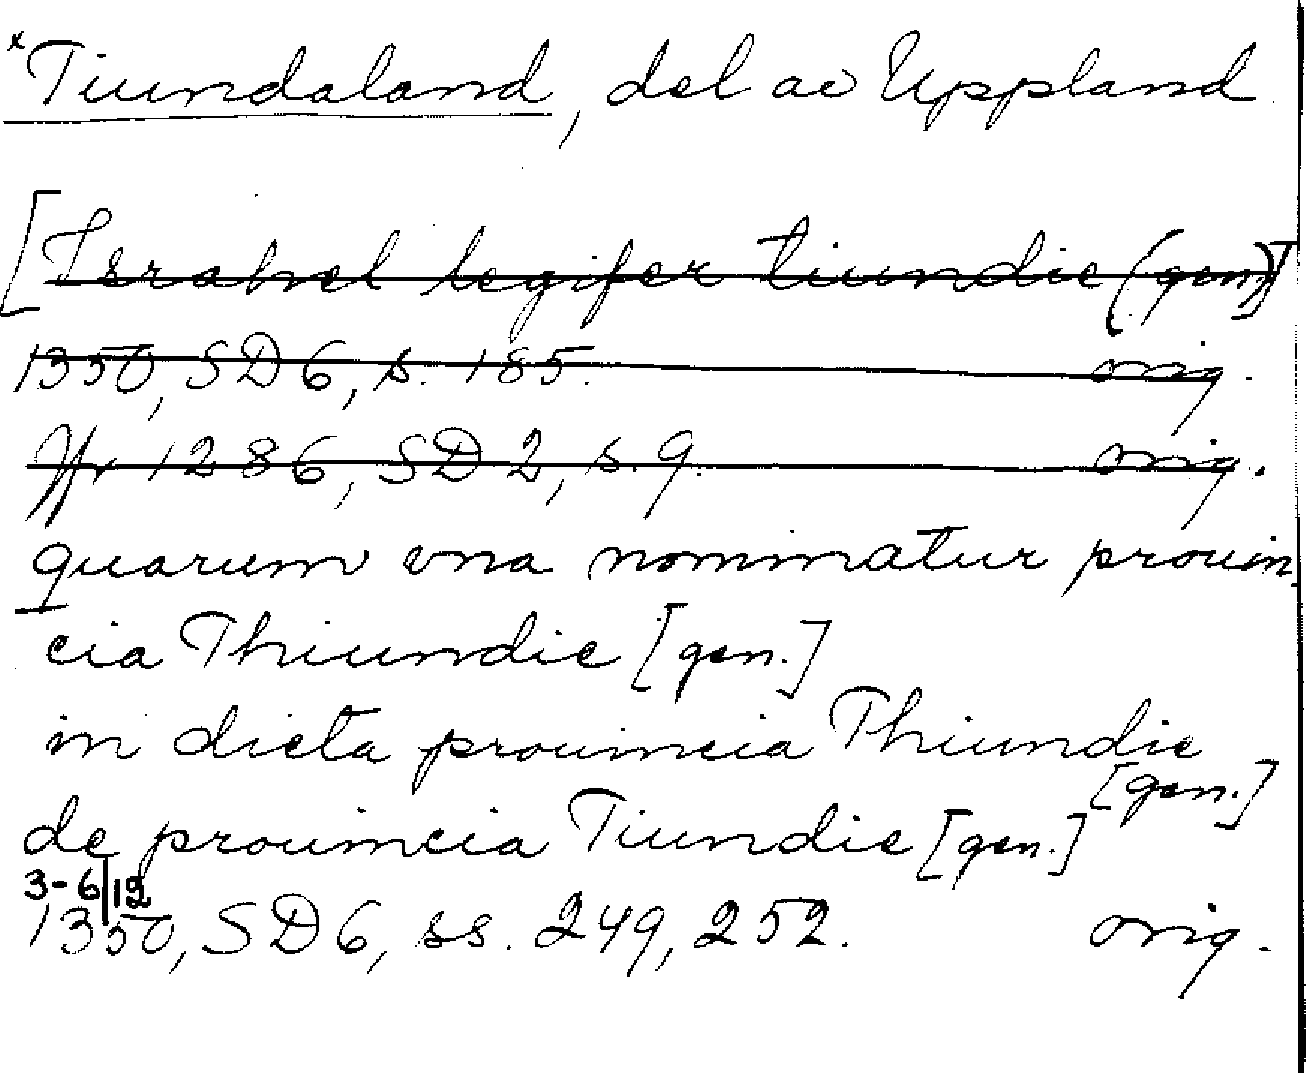 *Tiundaland, del av Uppland
[Israhel legifer tiundie (gen)]
1350, SD 6, s. 185. orig.
1286, SD 2, s. 9. orig.
quarum vna nominatur prouin
cia Thiundie [gen.]
in dicta prouincia Thiundie
[gen.]
de prouincia Tiundie [gen.]
3-6/12
1350, SD 6, ss. 249, 252. orig.